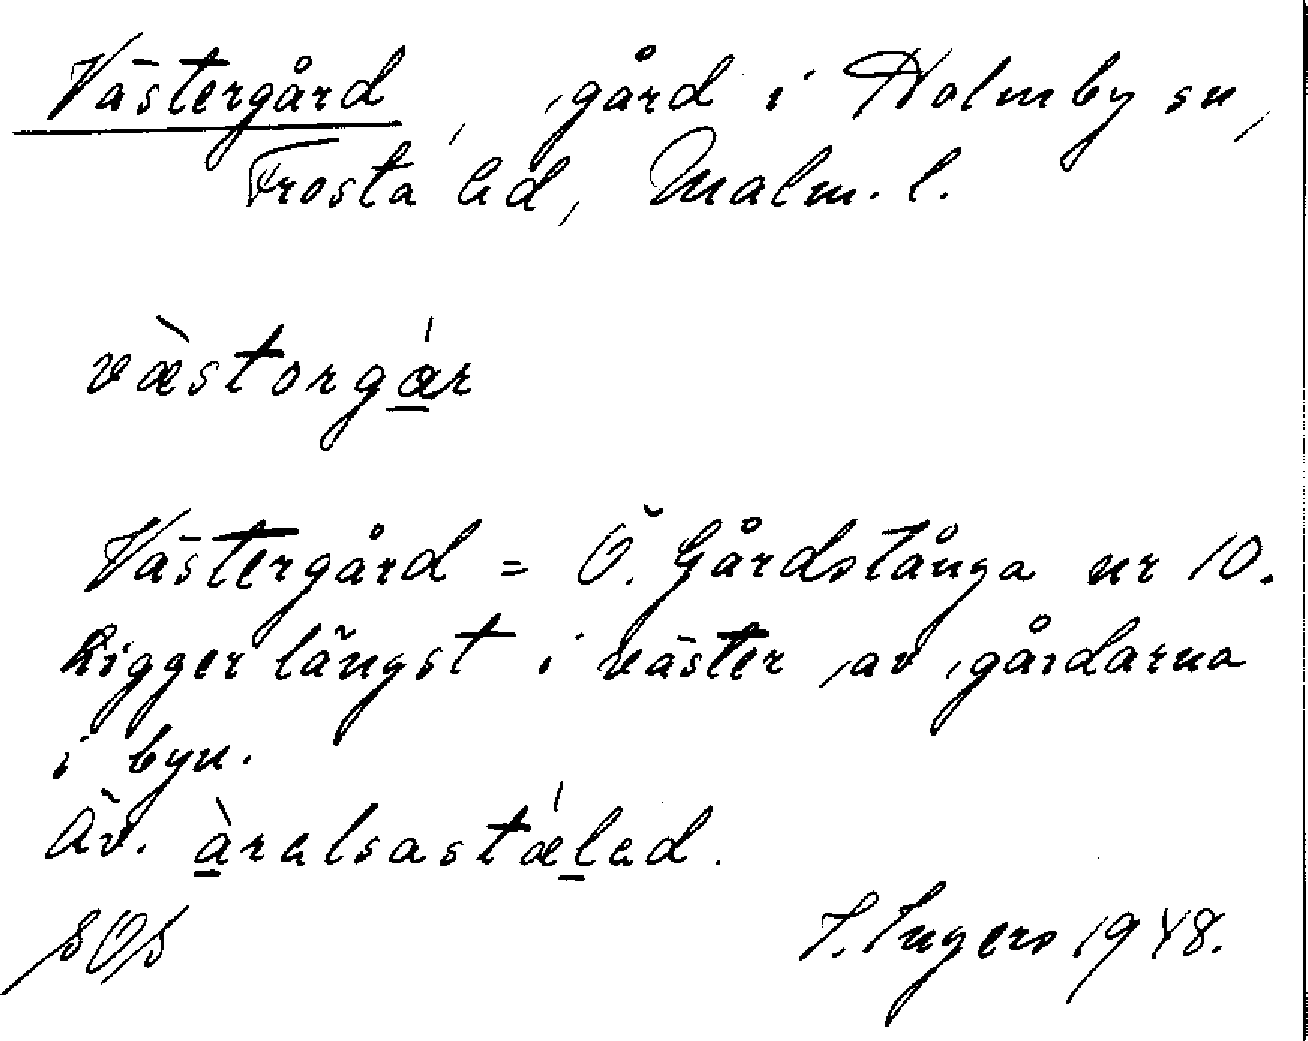 Västergård, gård i Holmby sn,
Frosta hd, Malm. l.
væ̀storgá̱r
Västergård = Ö. Gårdstånga nr 10.
Ligger längst i väster av gårdarna
i byn.
Äv. à̱ralsastǽḻad.
I. Ingers 1948.